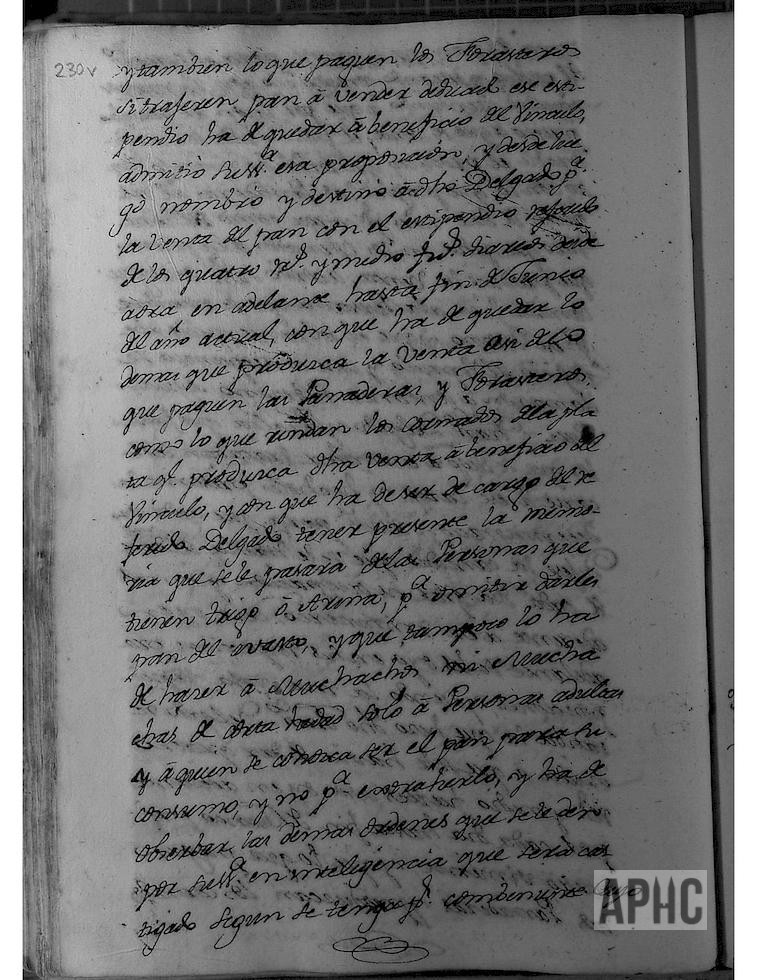 230v
y tambien lo que paguen los Forasteros
si trageren pan â vender
pendio ha de quedar â beneficio del Vinculo,
admitio su Sª esa proposicion, y desde lue
go nombro y destino â dho Delgado pª
la venta del pan con el estipendio
de los quatro rs. y medio diarios desde
aora en adelante hasta fin de Junio
del año actual, con que ha de quedar lo
demas que produzca la venta asi de lo
que paguen las Panaderas, y Forasteros,
como lo que rindan los de la pla
ta qe. produzca dha venta â beneficio del
Vinculo, y con que ha de ser de cargo del re
ferido Delgado tener presente la memo
ria que se le pasará de las Personas que
tienen trigo ô Arina, pª omitir darles
pan del, y que tampoco lo ha
de hazer â Muchachos ni Mucha
chas de corta hedad solo â Personas adultas
y â quien se conozca ser el pan para su
consumo, y no pª extraherlo, y ha de
observar las demas ordenes que se le den
por su Sª en inteligencia que será cas
tigado segun se tenga pr. combeniente
APHC